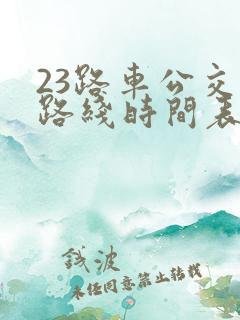 23路車公交
路綫時間表
錢波
未經同意禁止轉載